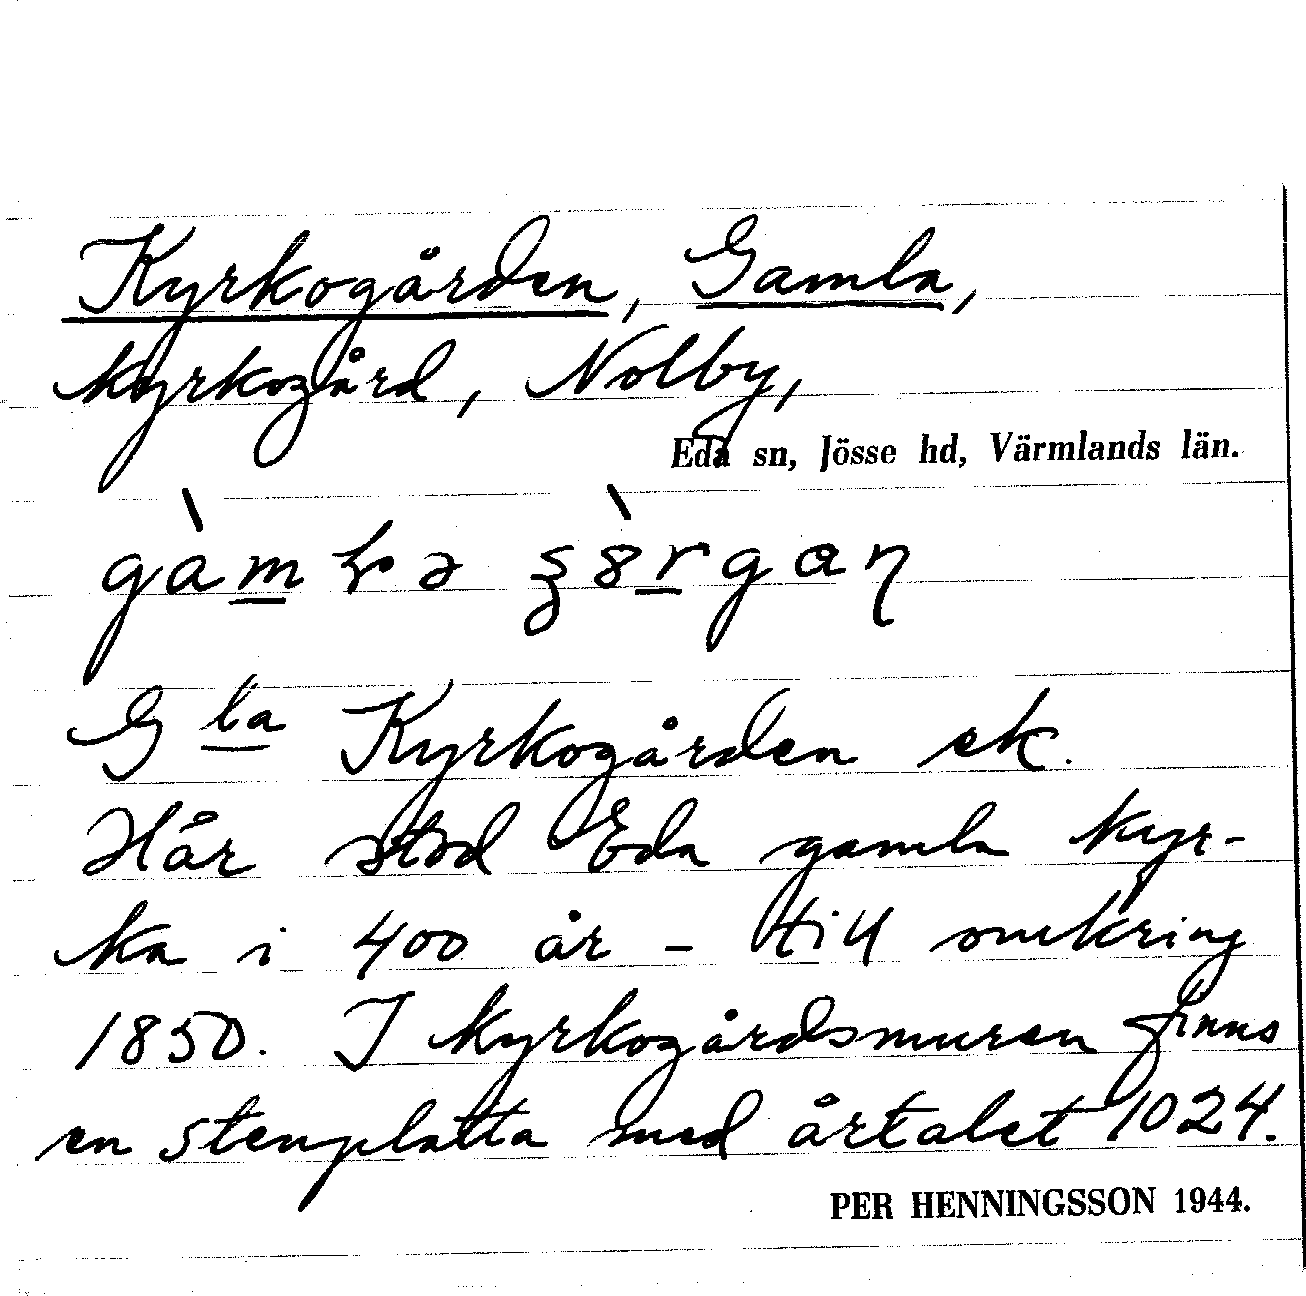 Kyrkogården, Gamla,
kyrkogård, Nolby,
Eda sn, Jösse hd, Värmlands län.
G la Kyrkogården ek.
Här stod Eda gamla kyr-
ka i 400 år - till omkring
1850. I kyrkogårdsmuren finns
en stenplatta med årtalet 1024.
PER HENNINGSSON 1944.